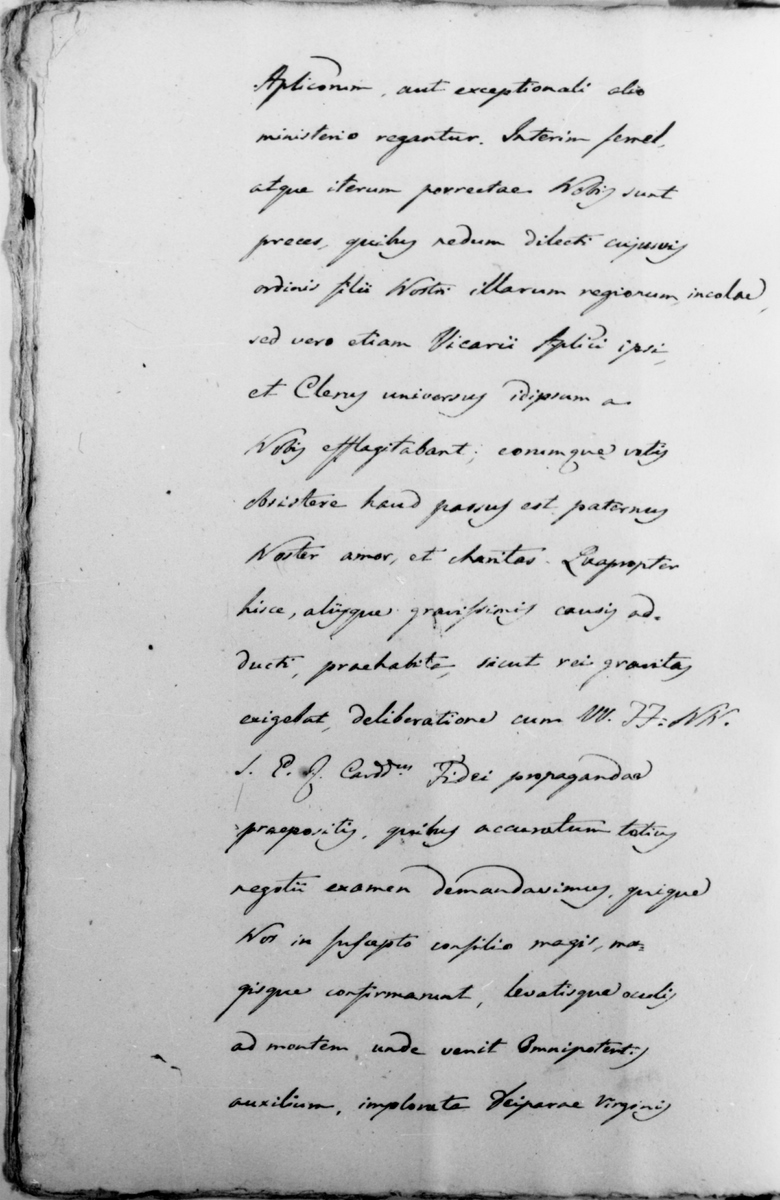 Aplicorum, aut exceptionali alio
ministerio regantur. Interim semel,
atque iterum porrectae Nobis sunt
preces, quibus nedum dilecti cujusvis
ordinis filii Nostri illarum regionum incolae,
sed vero etiam Vicarii Aplici ipsi,
et Clerus universus idipsum a
Nobis efflagitabant; eorumque votis
obsistere haud passus est paternus
Noster amor, et charitas. Quapropter
hisce, aliisque gravissimis causis ad=
ducti, praehabita, sicut rei gravitas
exigebat, deliberatione cum VV. FF. NN.
S. E. R. Cardd.us Fidei propagandae
praepositis, quibus accuratum totius
negotii examen demandavimus, quique
Nos in suscepto consilio magis, ma=
gisque confirmarunt, levatisque oculis
ad montem unde venit Omnipotentis
auxilium, implorata Deiparae Virginis